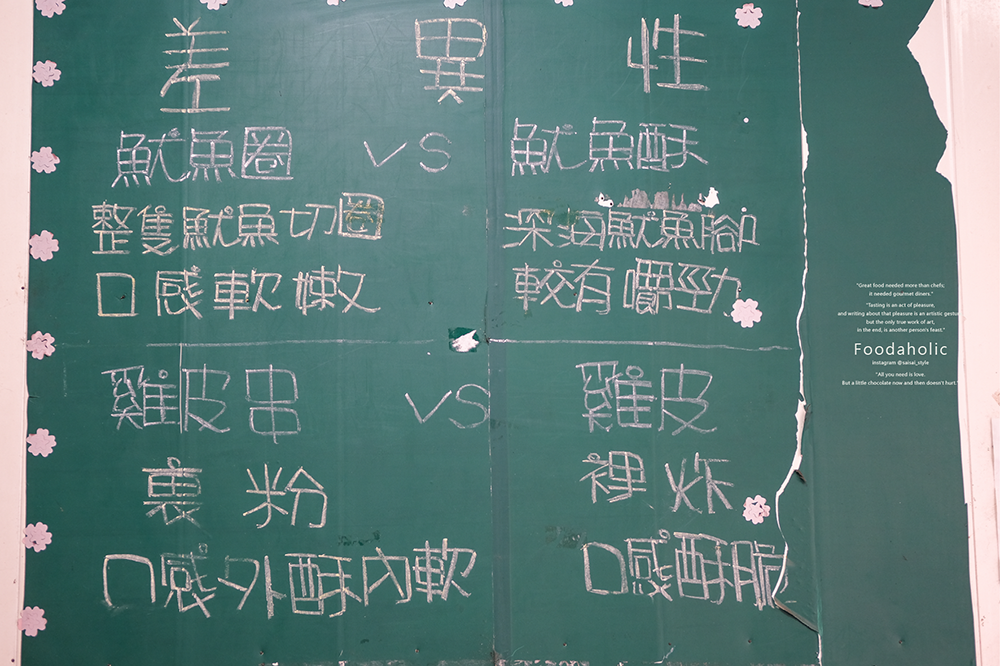 差異性
魷魚圈 VS 魷魚酥
整隻魷魚切圈 深海魷魚腳
口感軟嫩 較有嚼勁
雞皮串 VS 雞皮
裏粉 裡炸
口感外酥內軟 口感酥脆
"Great food needed more than chefs;
it needed gourmet diners."
"Tasting is an act of pleasure,
and writing about that pleasure is an artistic gesture,
but the only true work of art,
in the end, is another person's feast."
Foodaholic
instagram @saisai_style
"All you need is love.
But a little chocolate now and then doesn't hurt."